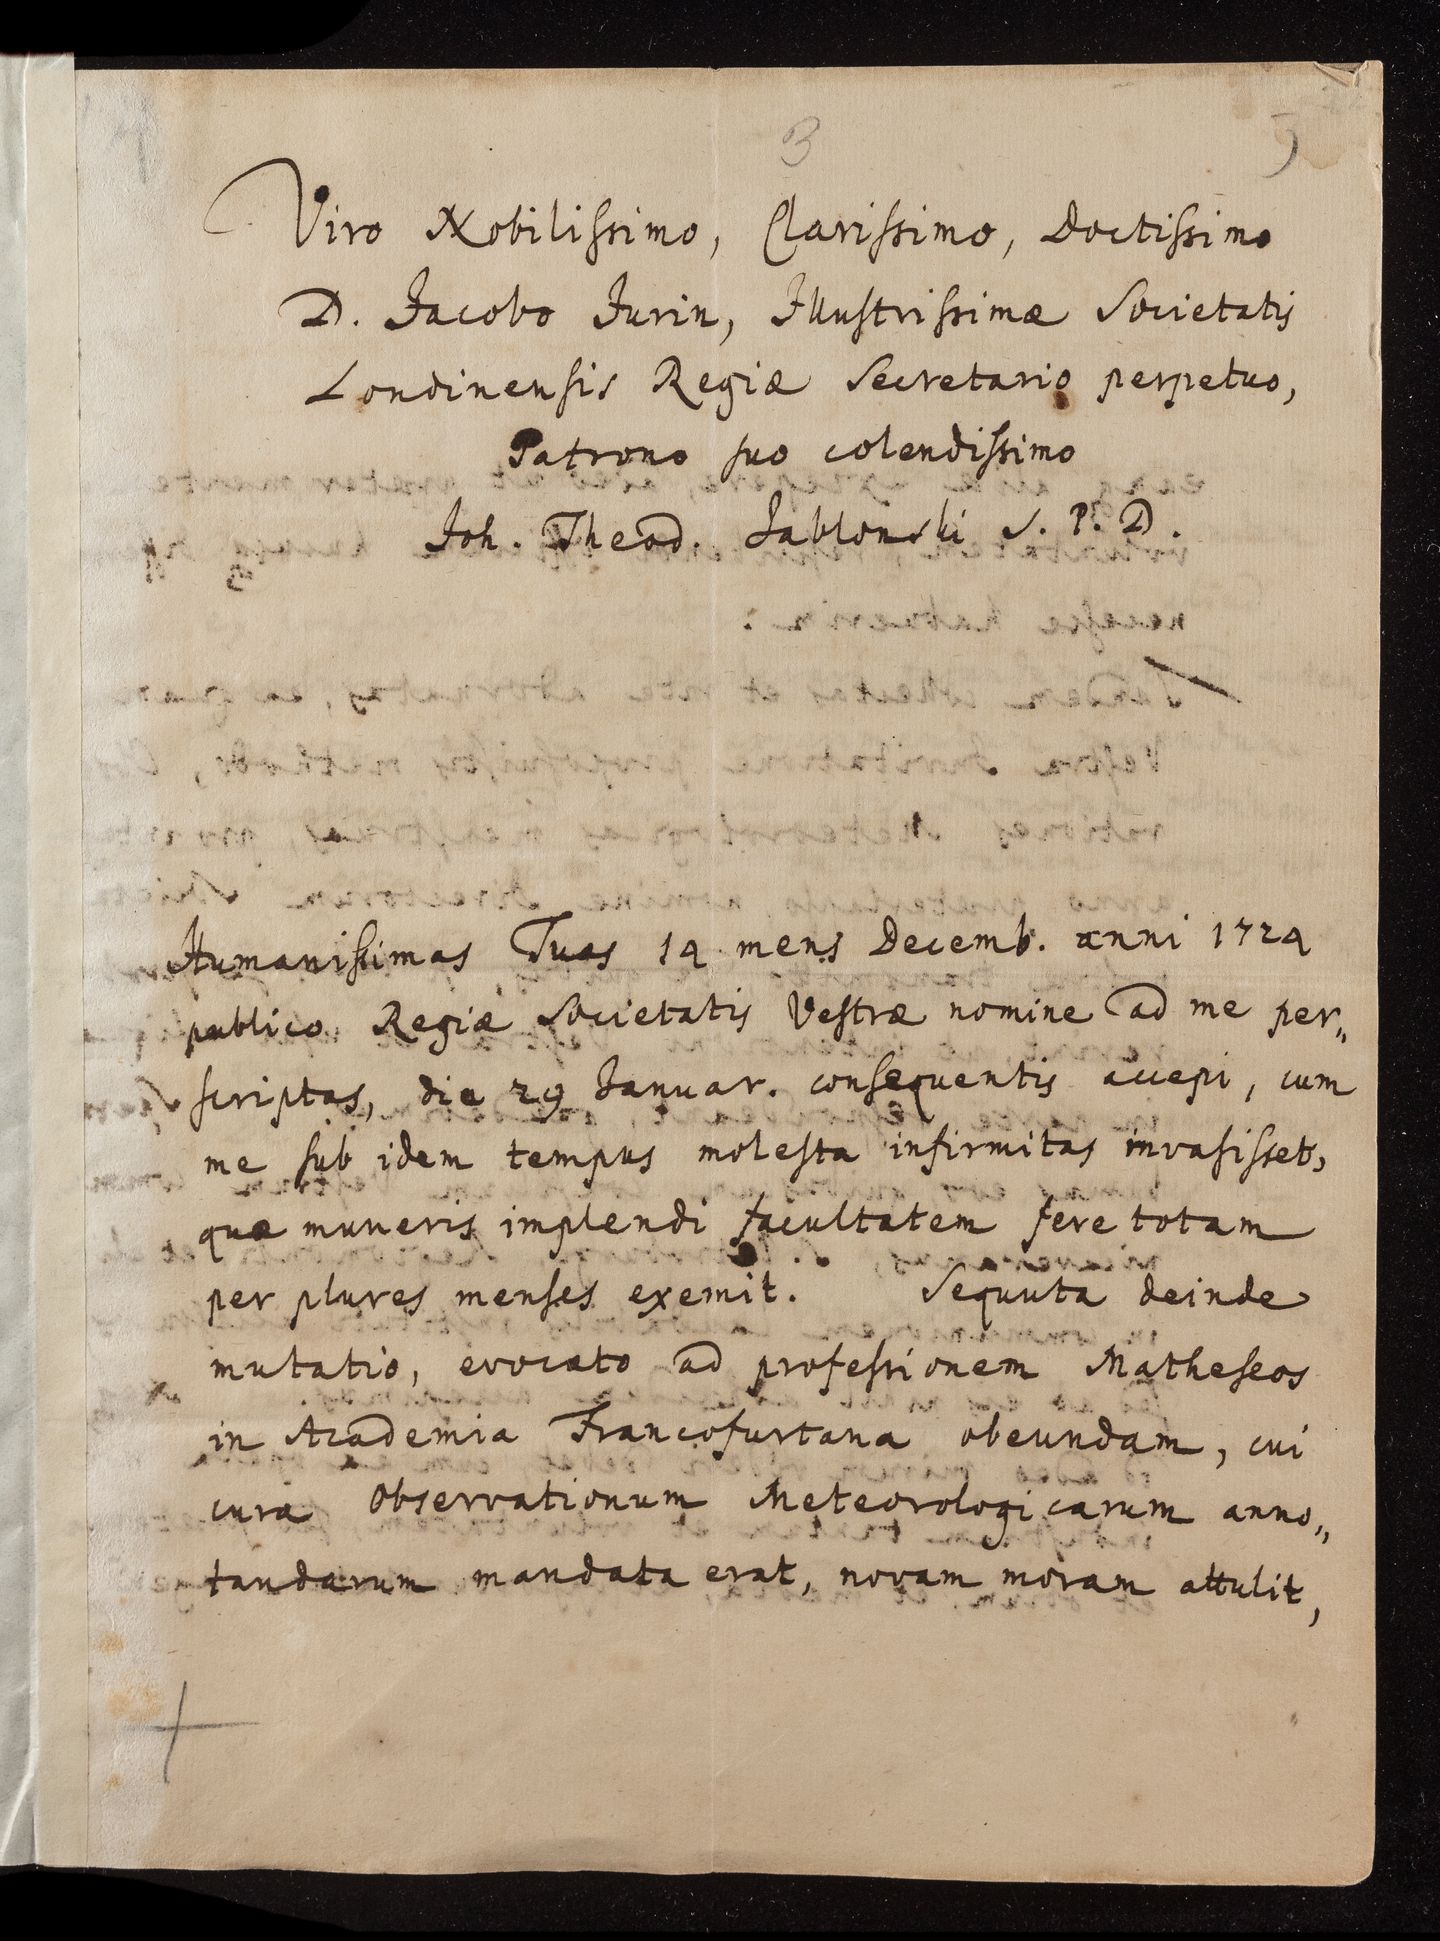 3
5
Viro Nobilissimo, Clarissimo, Doctissimo
D. Jacobo Jurin, Illustrissimæ Societatis
Londinensis Regiæ Secretario perpetuo,
Patrono suo colendissimo
Joh. Theod. Jablonski S. P. D.
Humanissimas Tuas 14 mens Decemb. anni 1724
publico Regiæ Societatis Vestræ nomine ad me per„
scriptas, die 29 Januar. consequentis accepi, cum
me sub idem tempus molesta infirmitas invasisset,
quæ muneris implendi facultatem fere totam
per plures menses exemit. Sequuta deinde
mutatio, evocato ad professionem Matheseos
in Academia Francofurtana obeundam, cui
cura Observationum Meteorologicarum anno„
tandarum mandata erat, novam moram attulit,